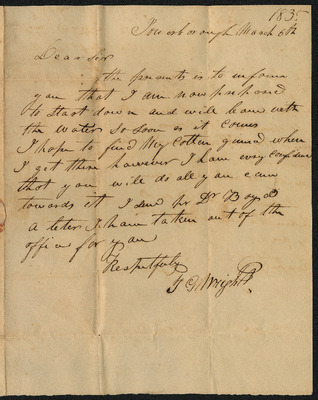 1835
Powersborough March 6th
Dear Sir
the presents is to inform
you that I am now prepared
to start down and will leave with
the water so soon as it comes
I hope to find My Cotten gined when
I get there however I have evry confidence
that you will do all you can
towards it I send pr Dr Boyd
a leter I have taken out of the
office for you
Respectfuly
G Wright